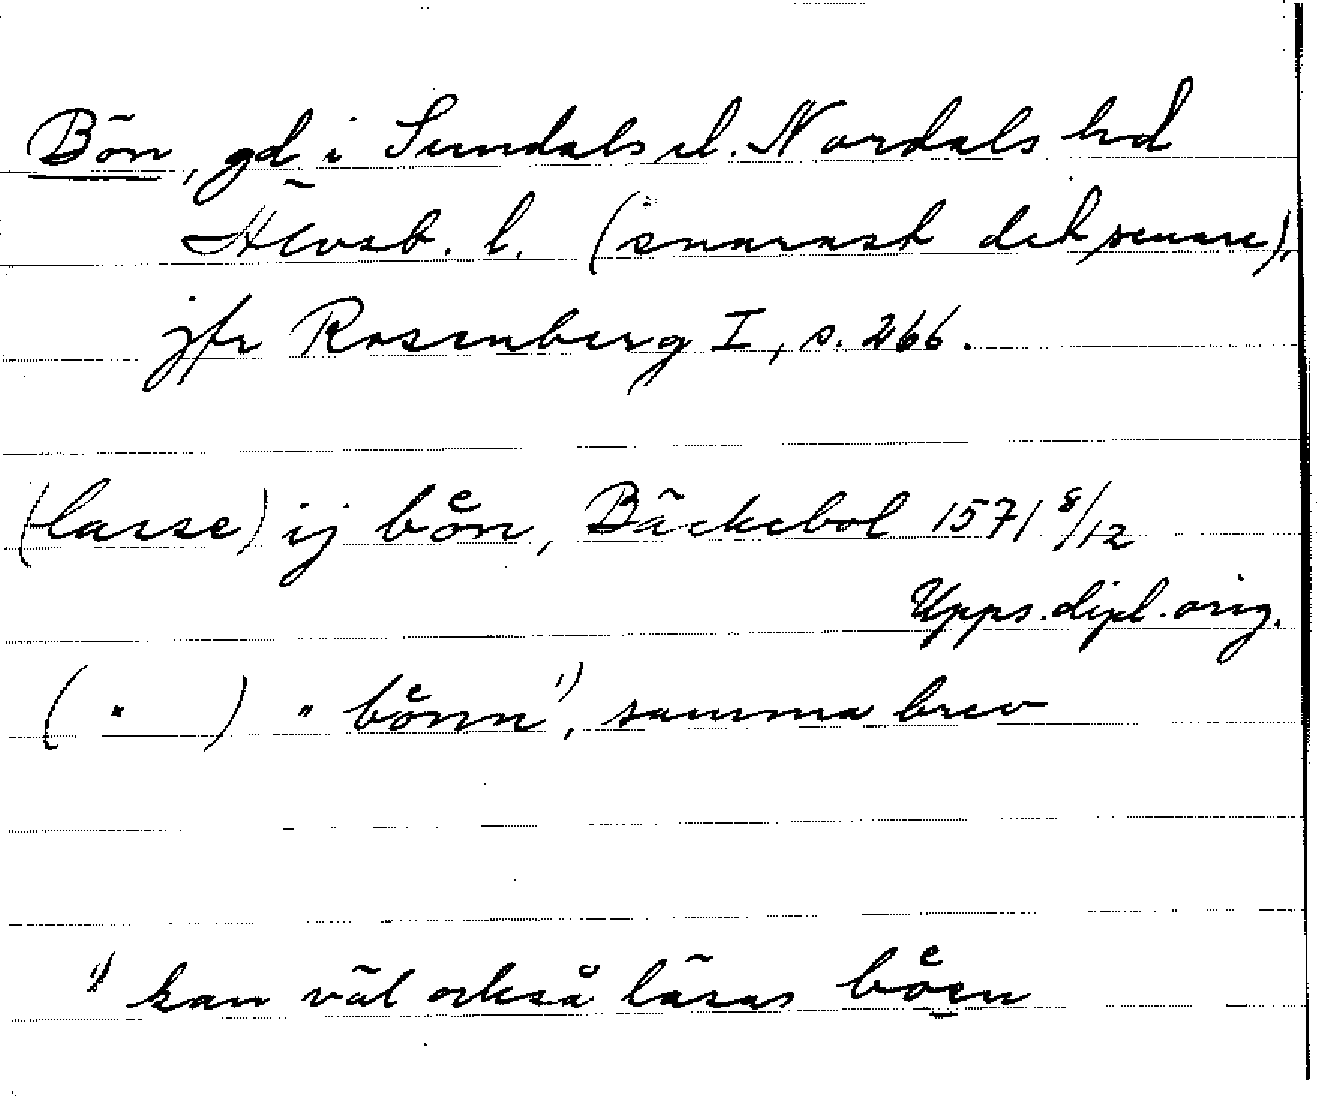 Bön, gd i Sundals el. Nordals hd
Älvsb. l. (snarast det senare),
jfr Rosenberg I, s. 266.
(lasse) ij boͤn, Bäckebol 1571 8/12
Upps. dipl. orig.
( " ) " boͤnn 1), samma brev
1) kan väl också läsas boͤen